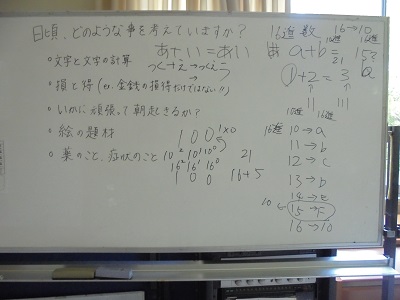 日頃、どのような事を考えていますか?
○文字と文字の計算
あ+い=あい
つく+え→つくえ
○損と得(ex.金銭の損得だけではない!!)
○いかに頑張って朝起きるか?
○絵の題材
○薬のこと、症状のこと
100
1×0
10² 10¹ 10⁰
16² 16¹ 16⁰
1 0 0
21
16+5
16進数
16→10
10進
16進
a+b=
21
15?
①+2=3
10進
16進
16進
10→a
11→b
12→c
13→b
14→e
10
15→F
16→10